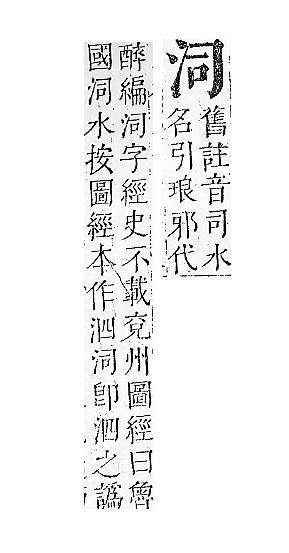 泀
舊註音司水
名引琅邪代
醉編泀字經史不載兗州圖經曰魯
國泀水按圖經本作泗泀卽泗之譌